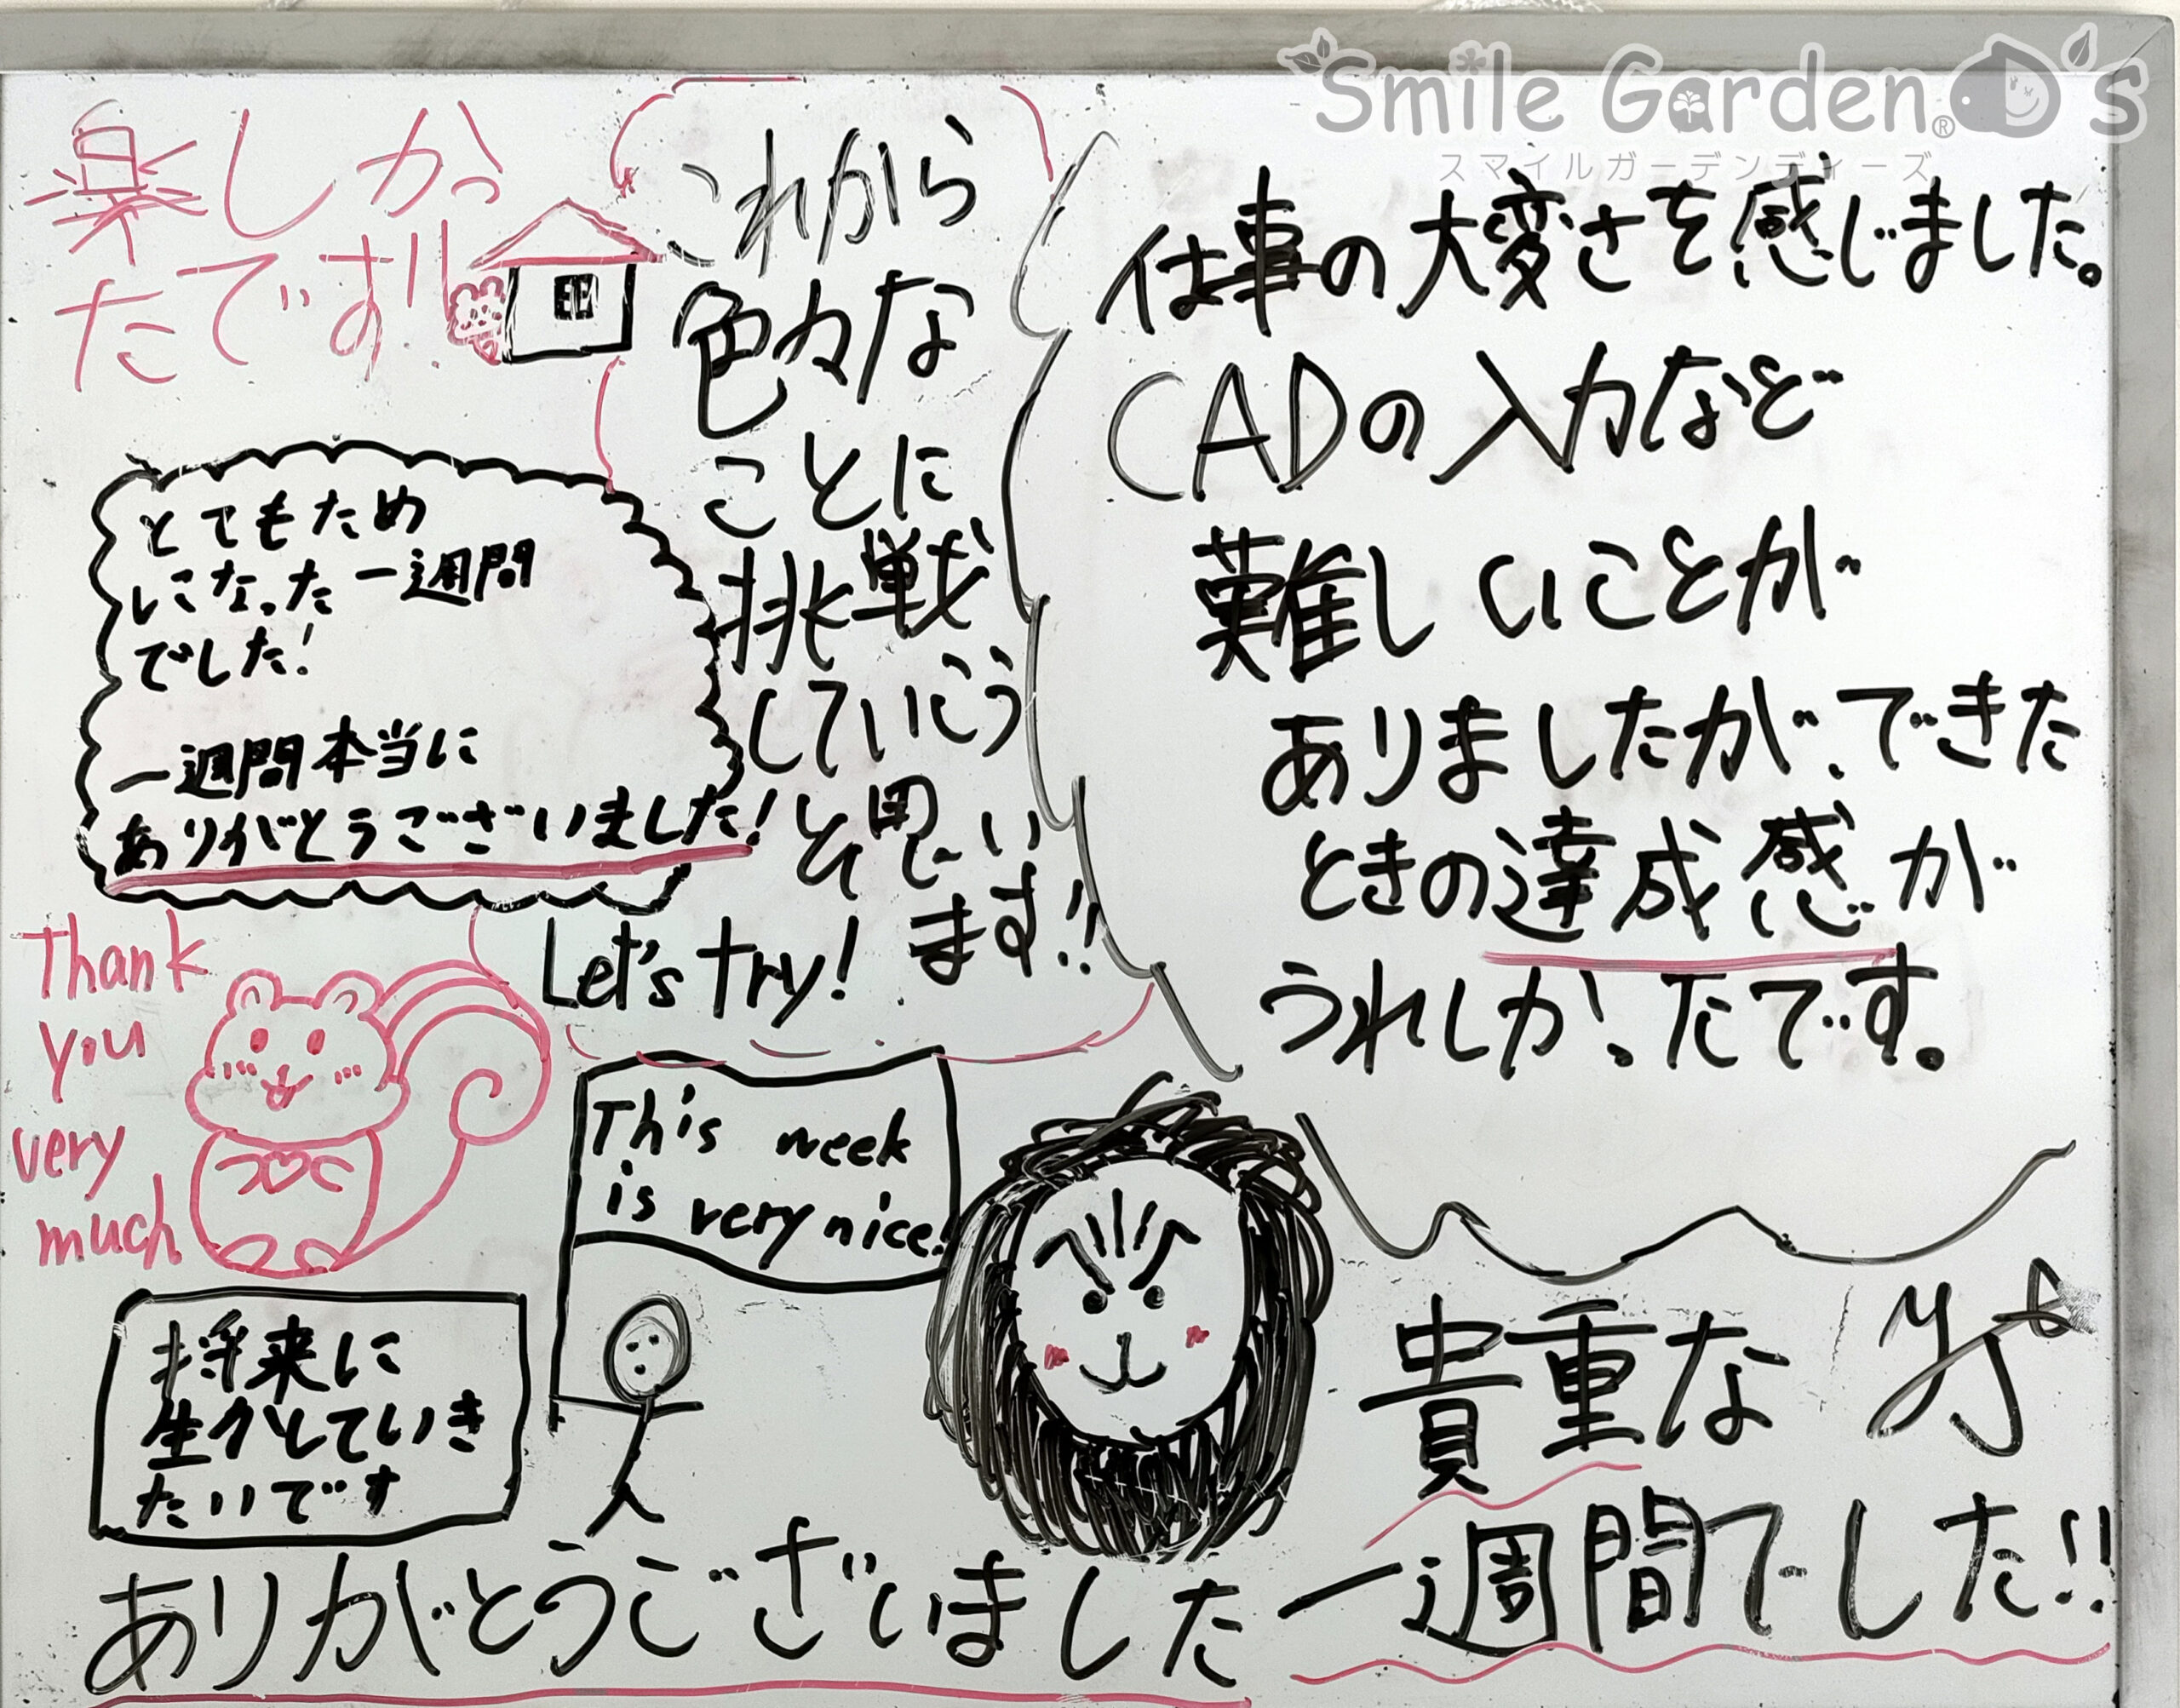 Smile Garden D's
スマイルガーデンディーズ
楽しかっ
たです!!
これから
色々な
ことに
挑戦
していこう
と思い
ます!!
Let's try!
仕事の大変さを感じました。
CADの入力など
難しいことが
ありましたが、できた
ときの達成感が
うれしかったです。
とてもため
になった一週間
でした!
一週間本当に
ありがとうございました!
Thank
you
very
much
This week
is very nice!
将来に
生かしていき
たいです
貴重な
一週間でした!!
ありがとうございました